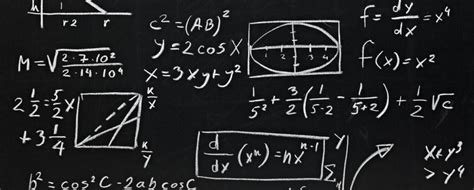 h
r2 r
c² = (AB)²
f = dy/dx = x⁴
M = √(2·7·10²/2·14·10⁴)
y = 2cosx
f(x) = x²
x = 3xy + y²
2 1/2 = 5/2 x
+ 3 1/4
k/x
k/y
1/5² + 3/2 (1/5-2 - 1/5+2) + 1/2 √c
d/dx (xⁿ) = nxⁿ⁻¹
y
Σ
x + y³
> y⁴
b² = cos²C - 2ab cosC